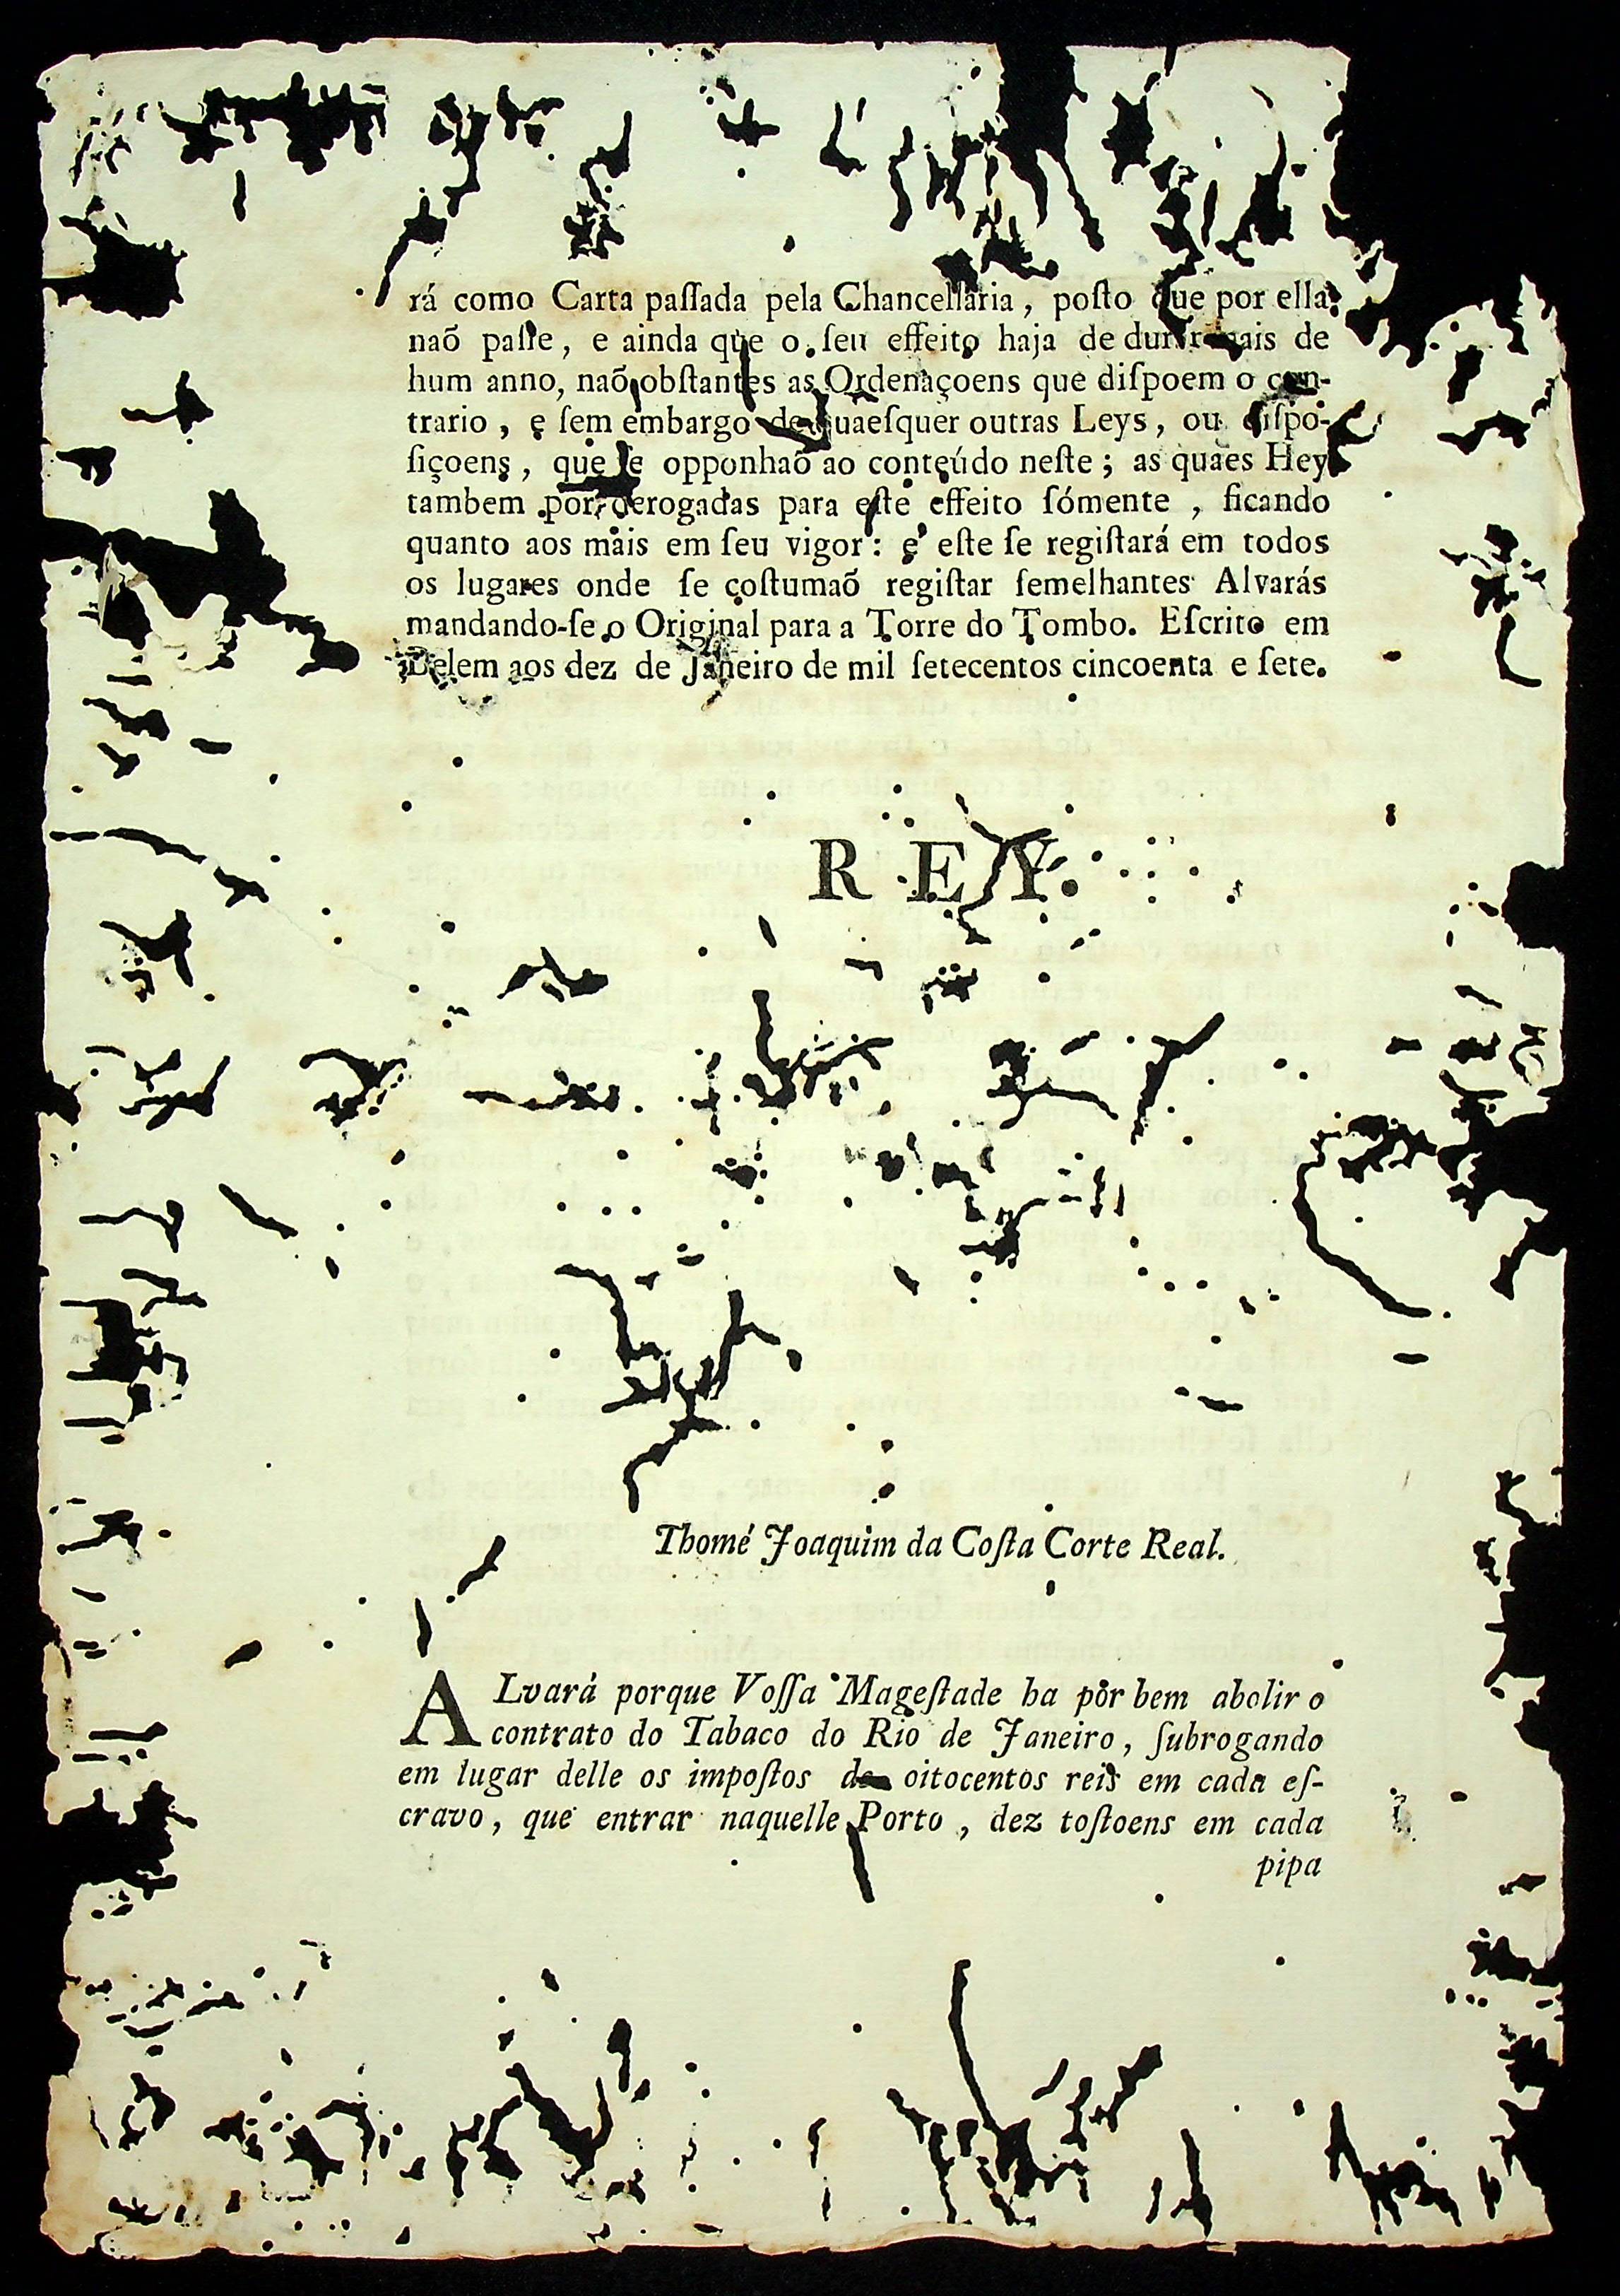 rá como Carta paſſada pela Chancellaria, poſto que por ella
naõ paſſe, e ainda que o ſeu effeito haja de durar mais de
hum anno, naõ obſtantes as Ordenaçoens que diſpoem o con-
trario, e ſem embargo de quaeſquer outras Leys, ou diſpo-
ſiçoens, que ſe opponhaõ ao conteúdo neſte; as quaes Hey
tambem por derogadas para eſte effeito ſómente, ficando
quanto aos mais em ſeu vigor: e eſte ſe regiſtará em todos
os lugares onde ſe coſtumaõ regiſtar ſemelhantes Alvarás
mandando-ſe o Original para a Torre do Tombo. Eſcrito em
Belem aos dez de Janeiro de mil ſetecentos cincoenta e ſete.
REY.
Thomé Joaquim da Coſta Corte Real.
ALvará porque Voſſa Mageſtade ha por bem abolir o
contrato do Tabaco do Rio de Janeiro, ſubrogando
em lugar delle os impoſtos de oitocentos reis em cada eſ-
cravo, que entrar naquelle Porto, dez toſtoens em cada
pipa